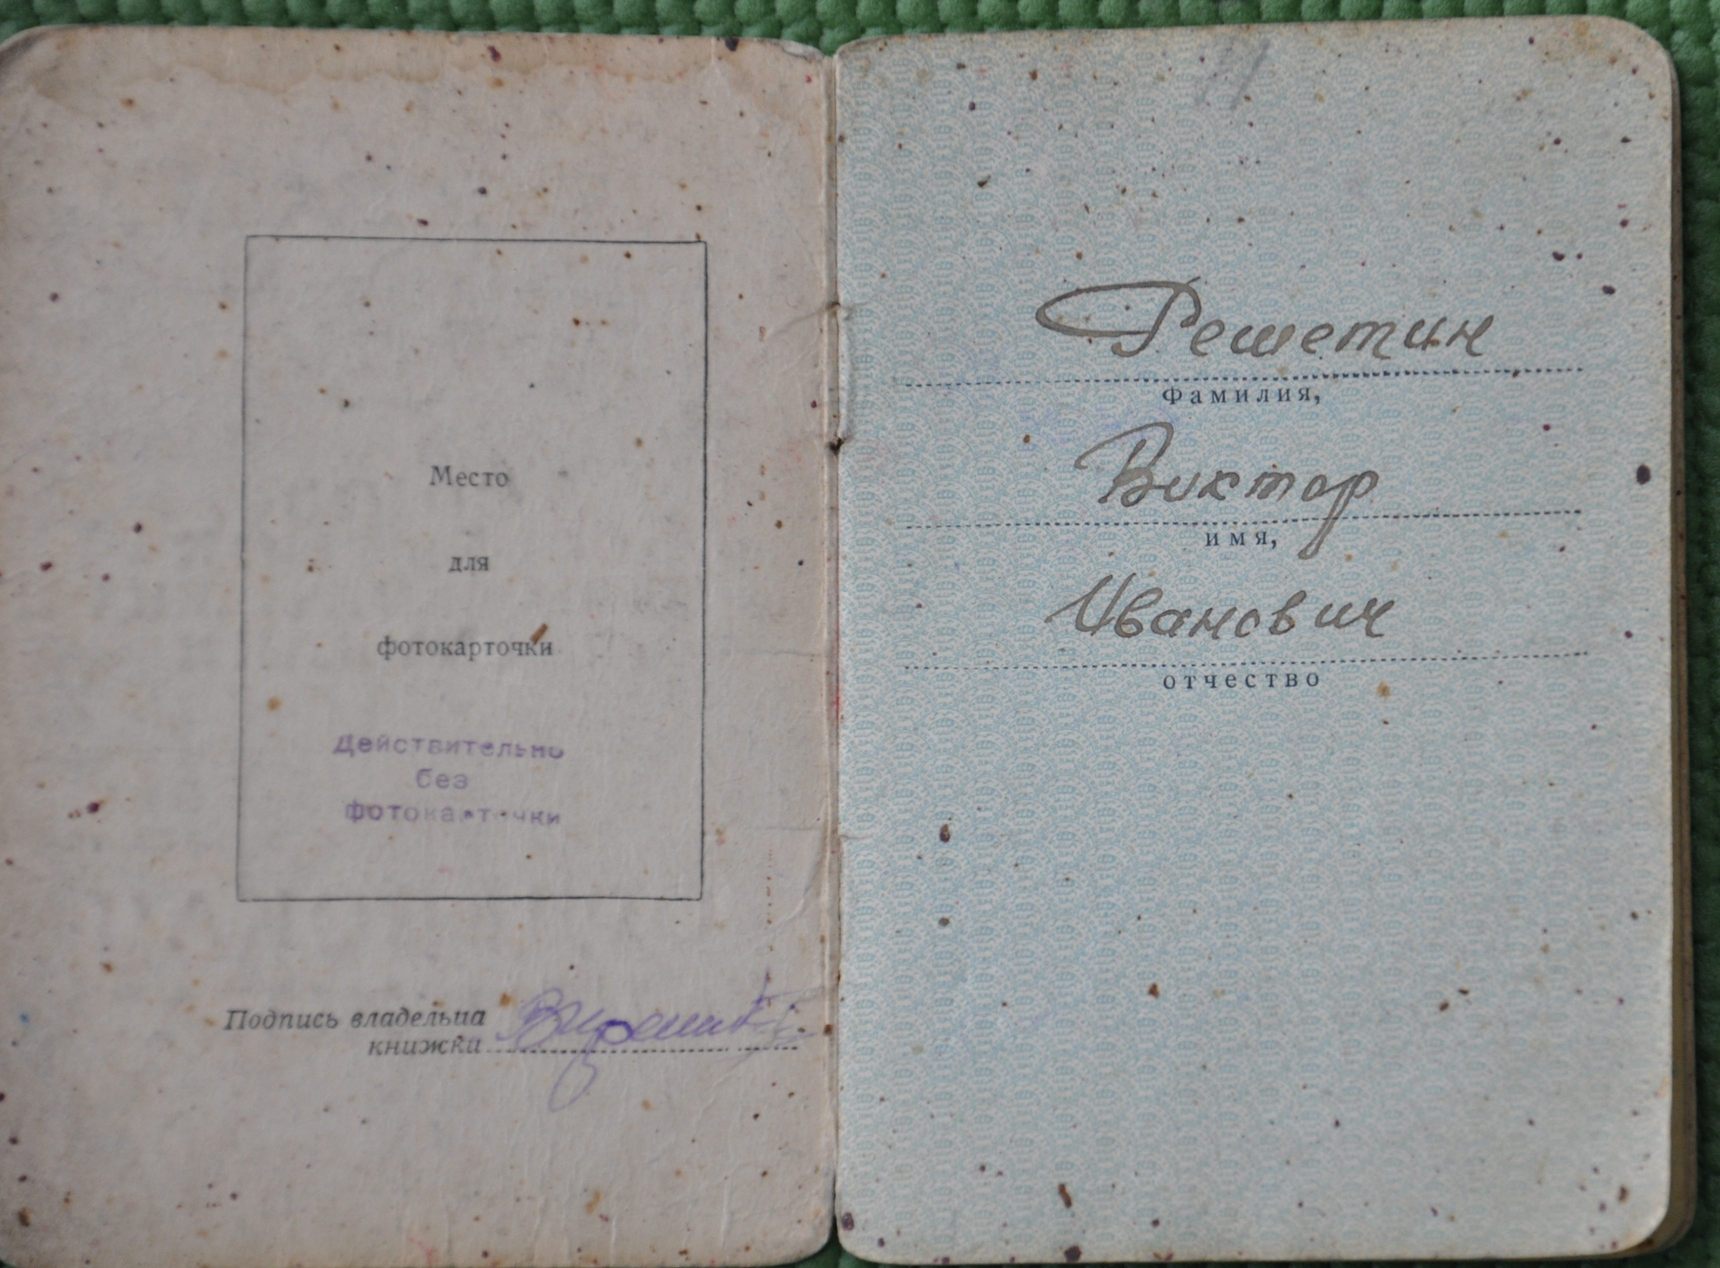 Место
для
фотокарточки
Действительно
без
фотокарточки
Подпись владельца
книжки
Решетин
фамилия,
Виктор
имя,
Иванович
отчество